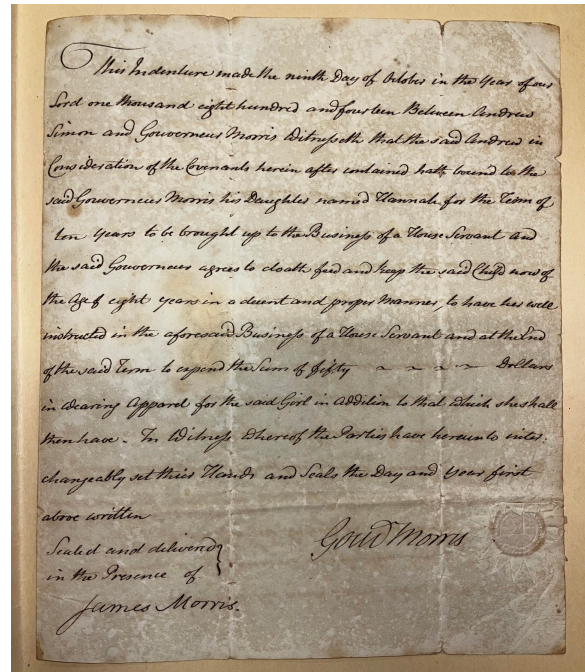 This Indenture made the ninth Day of October in the Year of our
Lord one thousand eight hundred and fourteen Between Andrew
Simon and Gouverneur Morris Witnesseth that the said Andrew in
Consideration of the Covenants herein after contained hath bound to the
said Gouverneur Morris his Daughter named Hannah for the Term of
ten Years to be brought up to the Business of a House Servant and
the said Gouverneur agrees to cloath feed and keep the said Child now of
the Age of eight Years in a decent and proper Manner, to have her well
instructed in the aforesaid Business of a House Servant and at the End
of the said Term to expend the Sum of fifty ~ ~ ~ ~ Dollars
in Wearing Apparel for the said Girl in Addition to that which she shall
then have. In Witness Whereof the Parties have hereunto inter-
changeably set their Hands and Seals the Day and Year first
above written
Sealed and delivered
in the Presence of
Gouv Morris
James Morris.